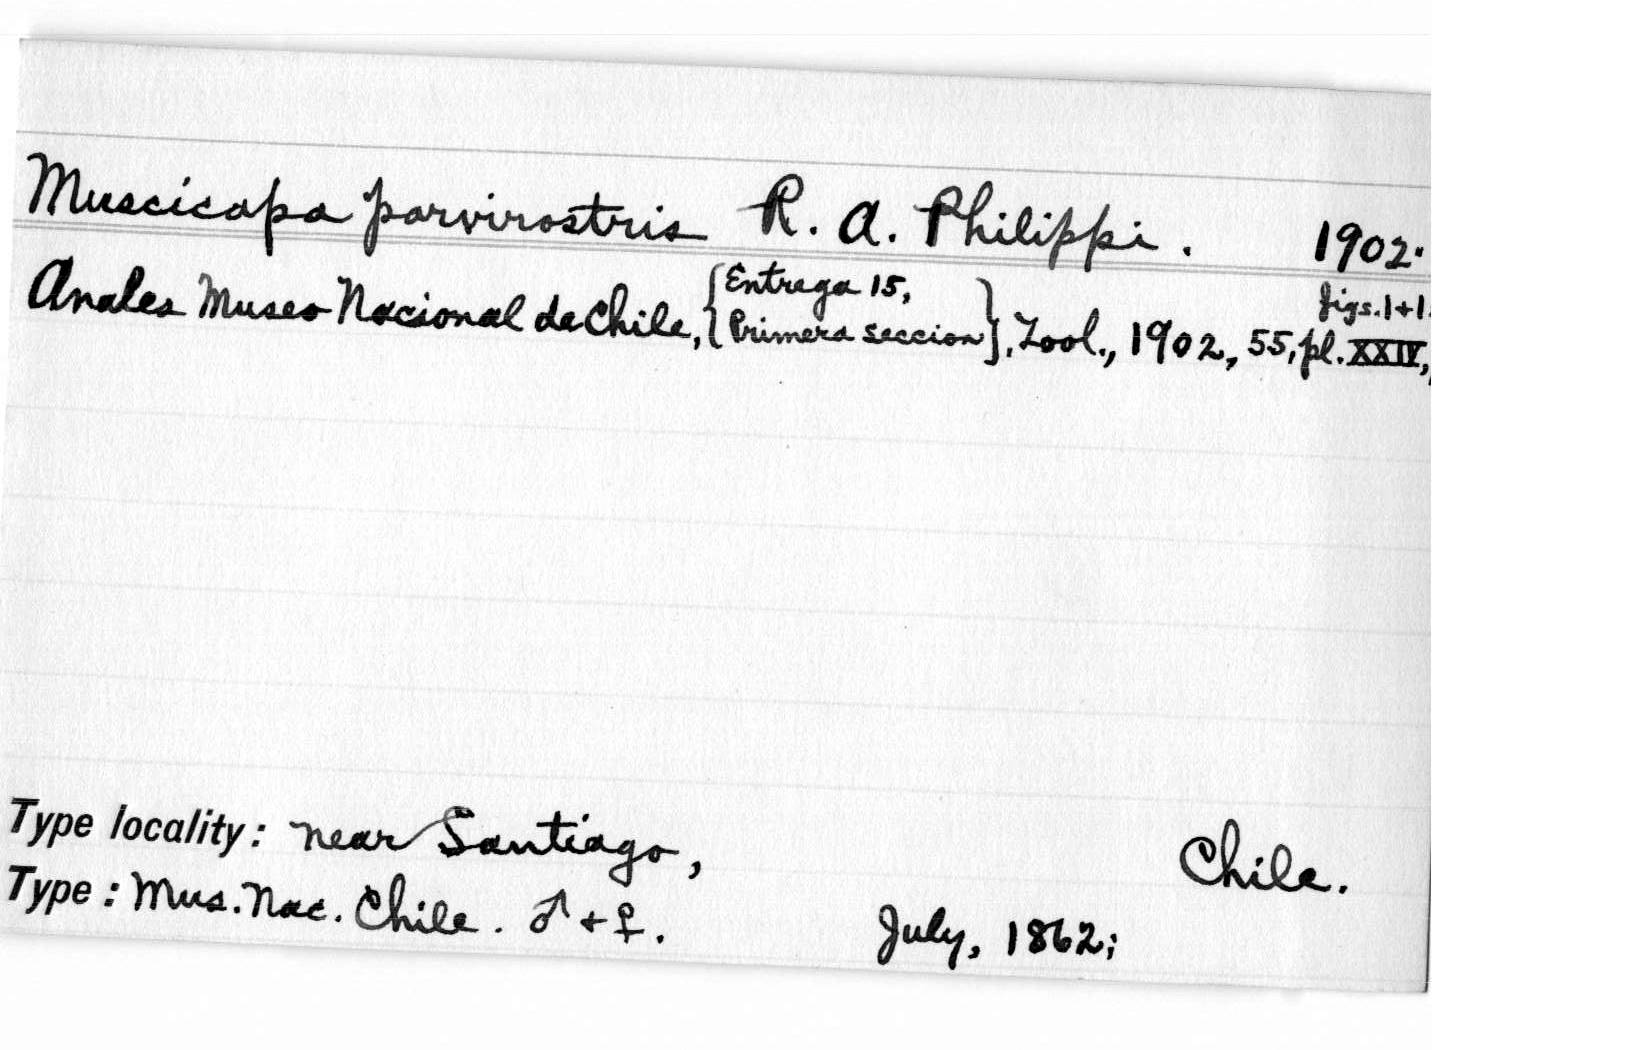 Muscicapa parvirostris R. A. Philippi. 1902.
Anales Museo Nacional de Chile, {Entrega 15, Primera seccion}, Zool., 1902, 55, pl. XXIV, figs. 1+1
Type locality: near Santiago, Chile.
Type: Mus. Nac. Chile. ♂ + ♀. July, 1862;